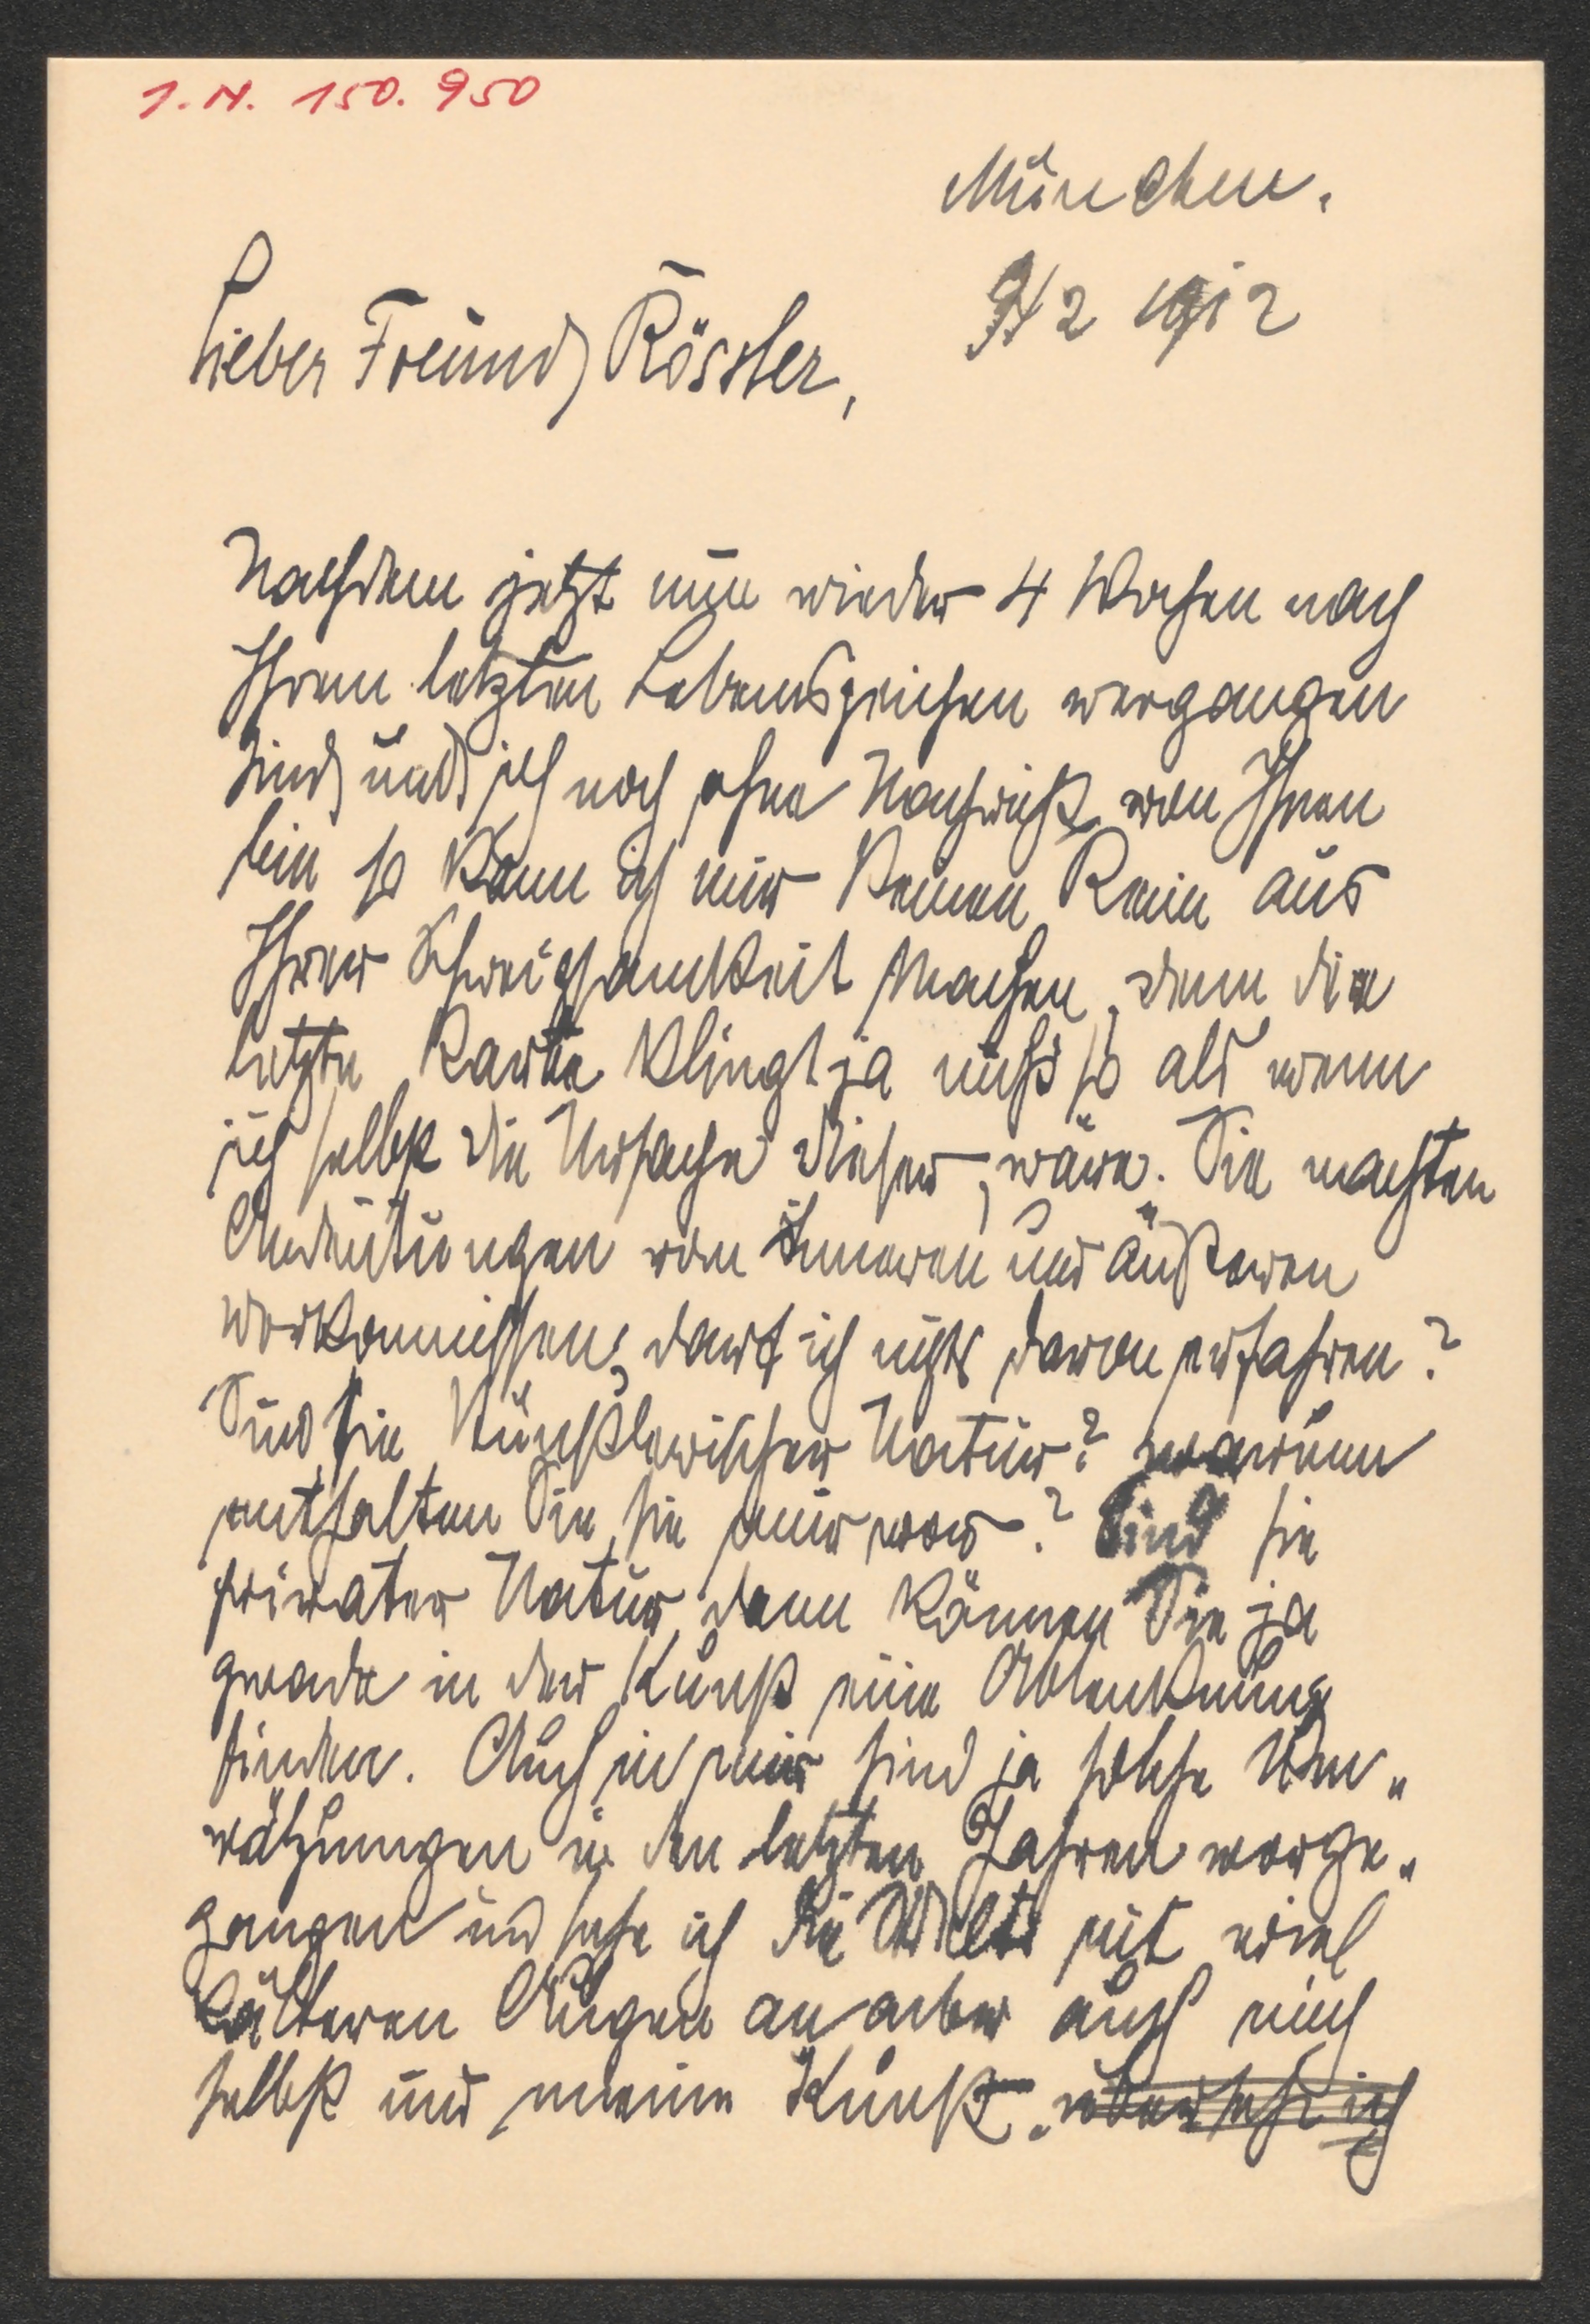 I. N. 150.950
München.
9/2 1912
Lieber Freund Rössler,
Nachdem jetzt nun wieder 4 Wochen nach
Ihrem letzten Lebenszeichen vergangen
sind und ich noch ohne Nachricht von Ihnen
bin so kann ich mir keinen Reim aus
Ihrer Schweigsamkeit machen, denn die
letzte Karte klingt ja nicht so als wenn
ich selbst die Ursache dieser, wäre. Sie machten
Andeutungen von Inneren und äußeren
Vorkomnissen, darf ich nichts davon erfahren?
Sind sie künstlerischer Natur? warum
enthalten Sie sie mir vor? Sind sie
privater Natur dann können Sie ja
gerade in der Kunst eine Ablenkung
finden. Auch in mir sind ja solche Um„
wälzungen in den letzten Jahren vorge„
gangen und sehe ich die Welt mit viel
kälteren Augen an aber auch mich
selbst und meine Kunst. übersehe ich